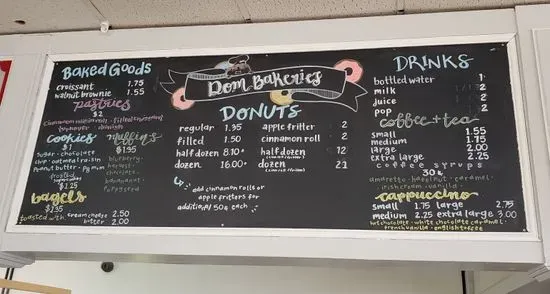 Baked Goods
croissant 1.75
walnut brownie 1.55
pastries
$2
cookies
$1
sugar · chocolate
chip · oatmeal raisin
peanut butter · pgmn
frosted
$1.25
muffins
$1.95
blueberry
chocolate
poppyseed
bagels
$1.35
toasted with cream cheese 2.50
butter 2.00
Dom Bakeries
DONUTS
regular 1.95
filled 1.50
half dozen 8.10+
dozen 16.00+
apple fritter 2
cinnamon roll 2
half dozen 12
dozen 21
add cinnamon rolls or
apple fritters for
additional 50¢ each
DRINKS
bottled water 1
milk 2
juice 2
pop 2
coffee + tea
small 1.55
medium 1.75
large 2.00
extra large 2.25
coffee syrups
30¢
amaretto · hazelnut · caramel ·
irish cream · vanilla ·
cappuccino
small 1.75 large 2.75
medium 2.25 extra large 3.00
hot chocolate · white chocolate caramel ·
french vanilla · english toffee